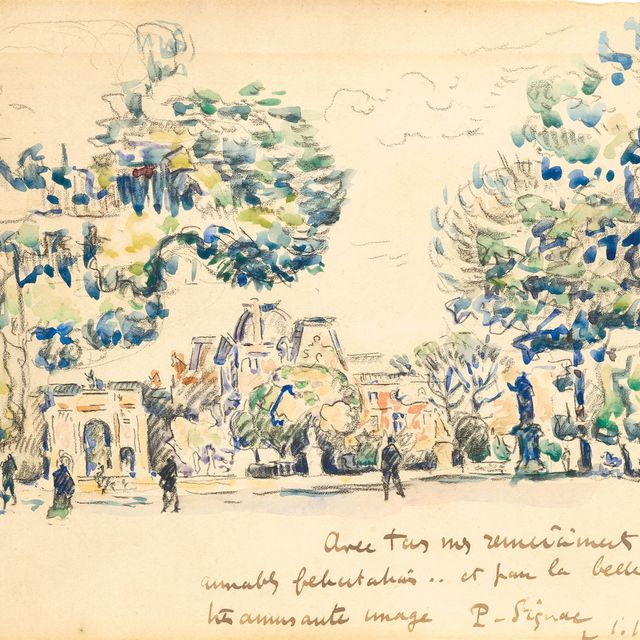 Avec tous mes remerciements
aimables félicitations .. et pour la belle
très amusante image P. Signac